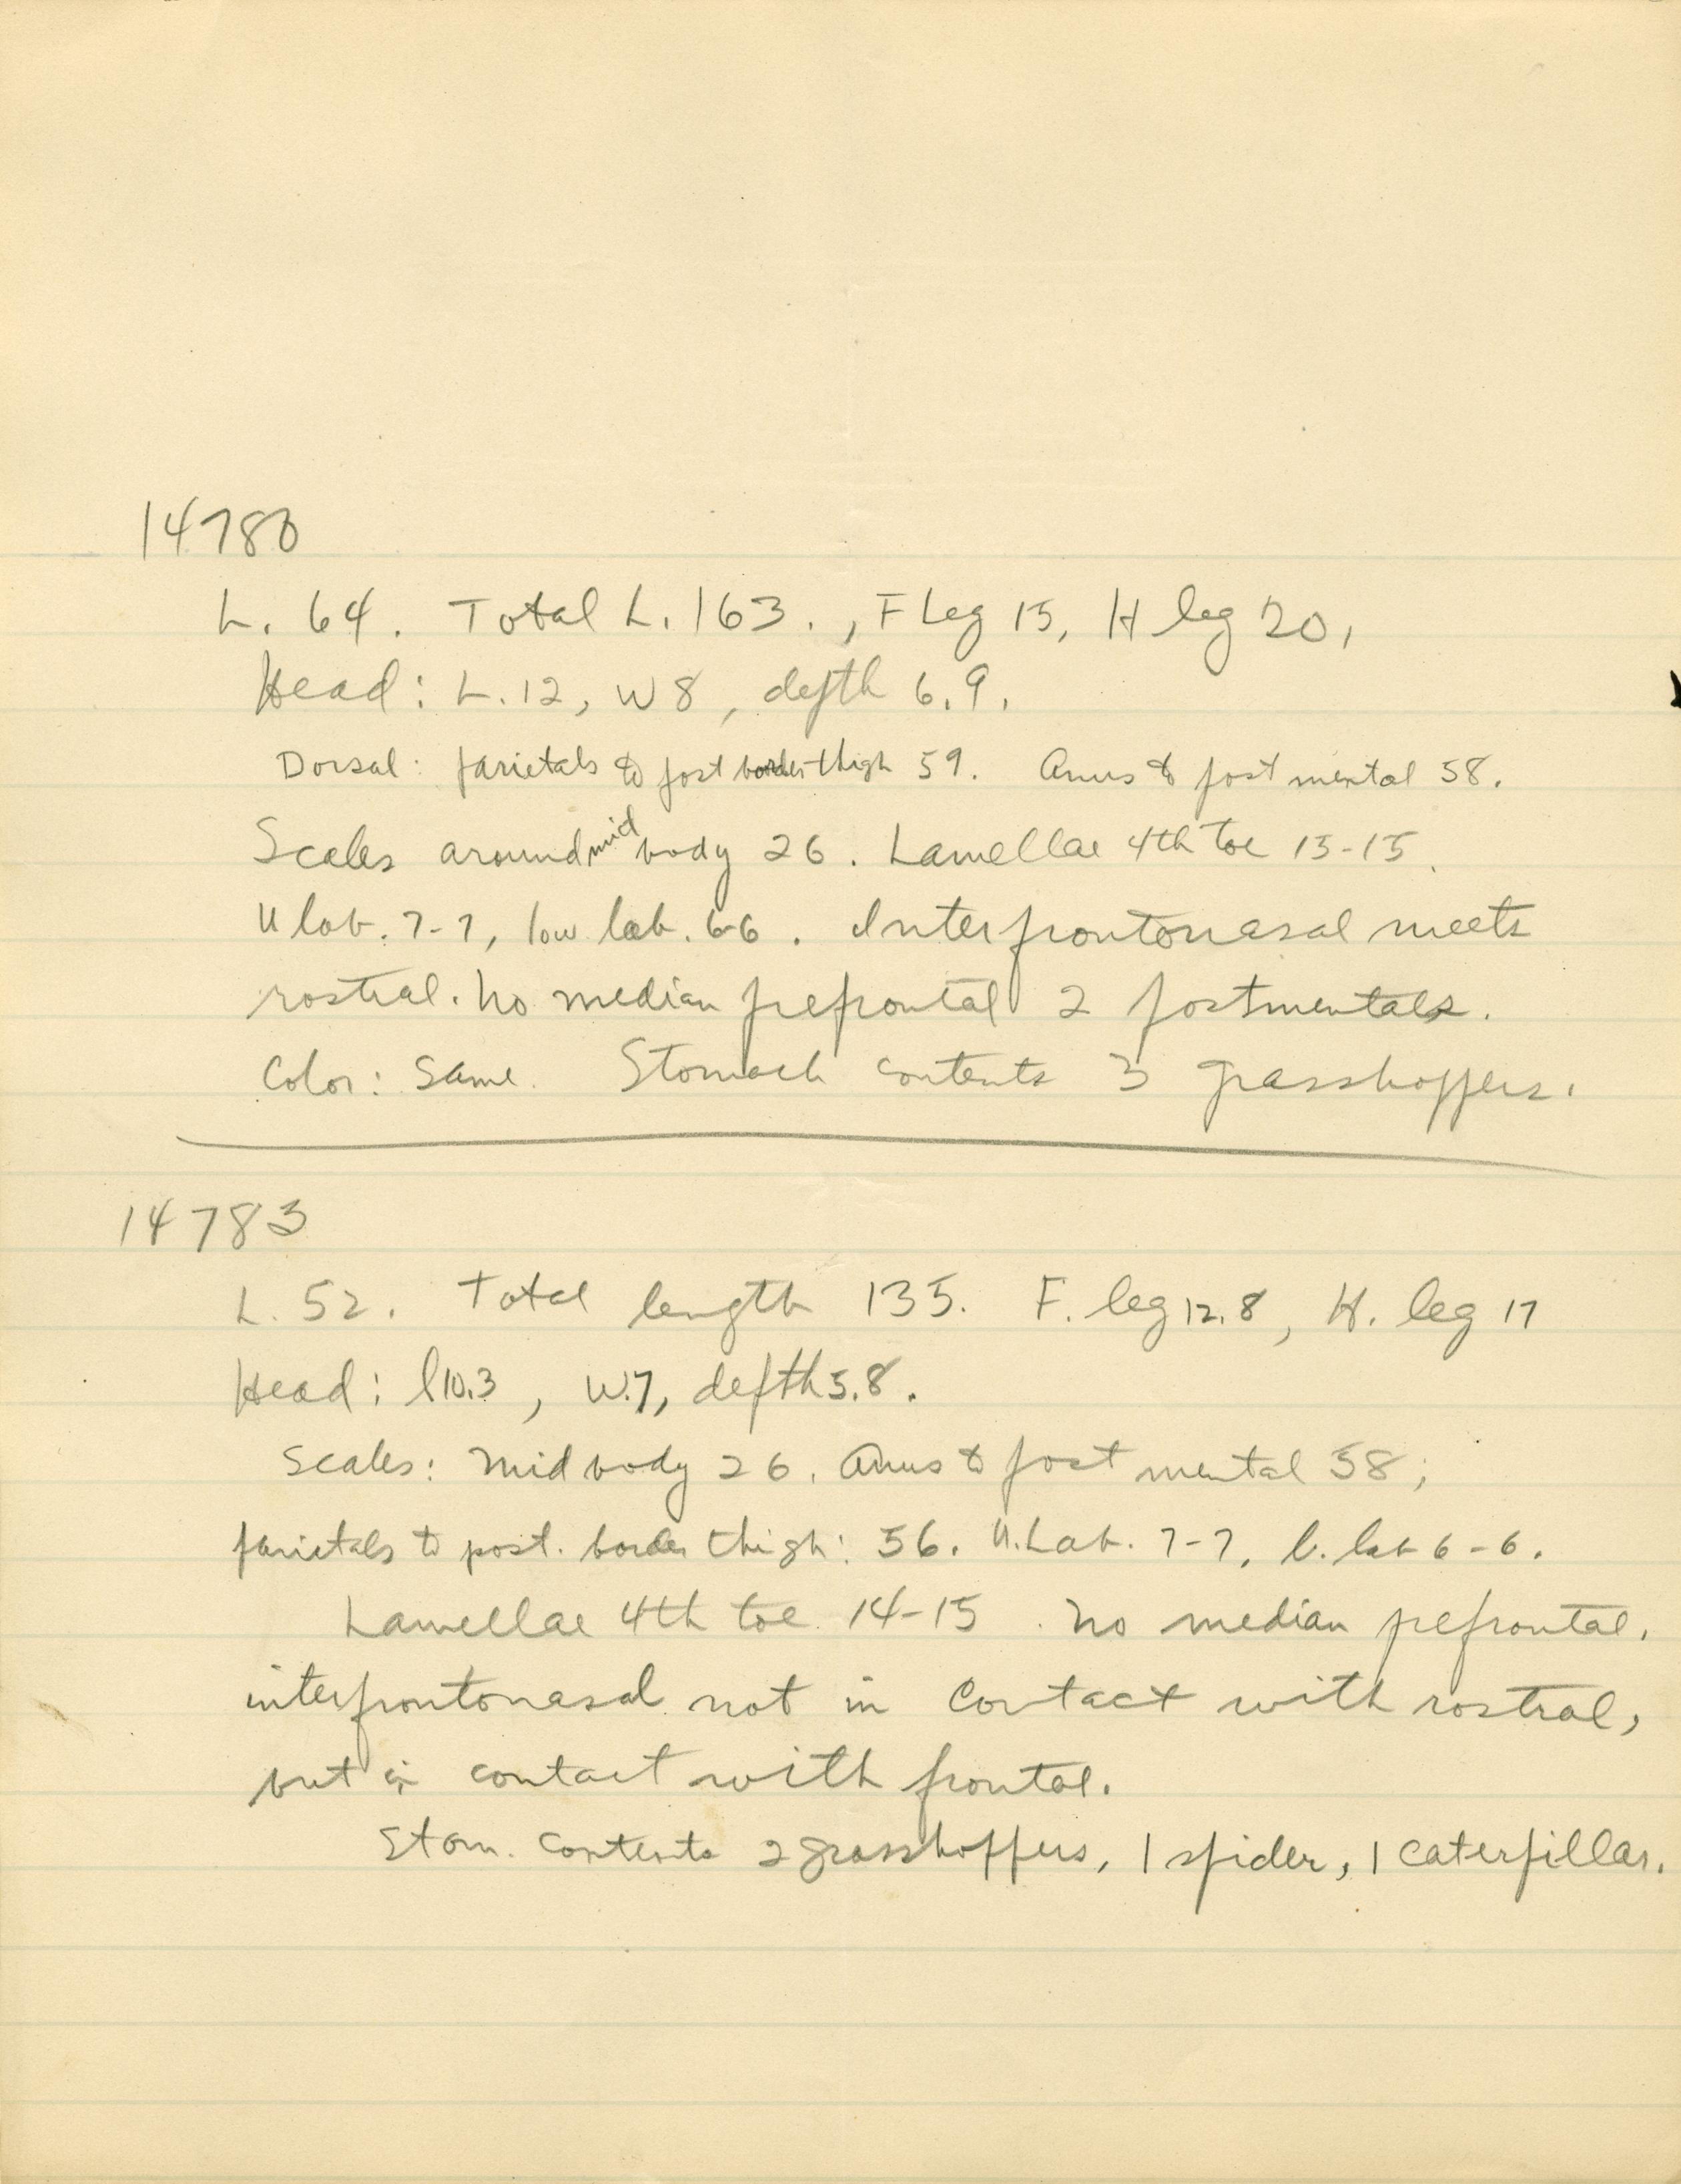 14780
L. 64. Total L. 163. , F Leg 15, H leg 20,
Head: L. 12, W 8, depth 6.9.
Dorsal: parietals to post border thigh 59. Anus to post mental 58.
Scales around mid body 26. Lamellae 4th toe 15-15.
U lab. 7-7, low lab. 6-6. Interfrontonasal meets
rostral. No median prefrontal 2 postmentals.
Color: Same. Stomach contents 3 grasshoppers.
14783
L. 52. Total length 135. F. leg 12.8, H. leg 17
Head: l 10.3, W. 7, depth 5.8.
Scales: Mid body 26. Anus to post mental 58;
parietals to post. border thigh: 56. U. Lab. 7-7, l. lab 6-6.
Lamellae 4th toe 14-15. No median prefrontal,
interfrontonasal not in contact with rostral,
but in contact with frontal.
Stom. contents 2 grasshoppers, 1 spider, 1 caterpillar.